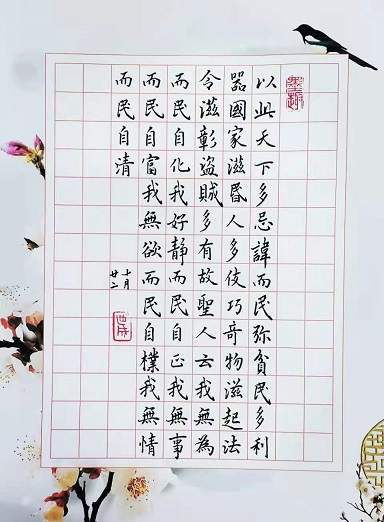 墨趣
以此天下多忌諱而民弥貧民多利
器國家滋昬人多伎巧奇物滋起法
令滋彰盗賊多有故聖人云我無為
而民自化我好靜而民自正我無事
而民自富我無欲而民自樸我無情
而民自清
十月
廿二